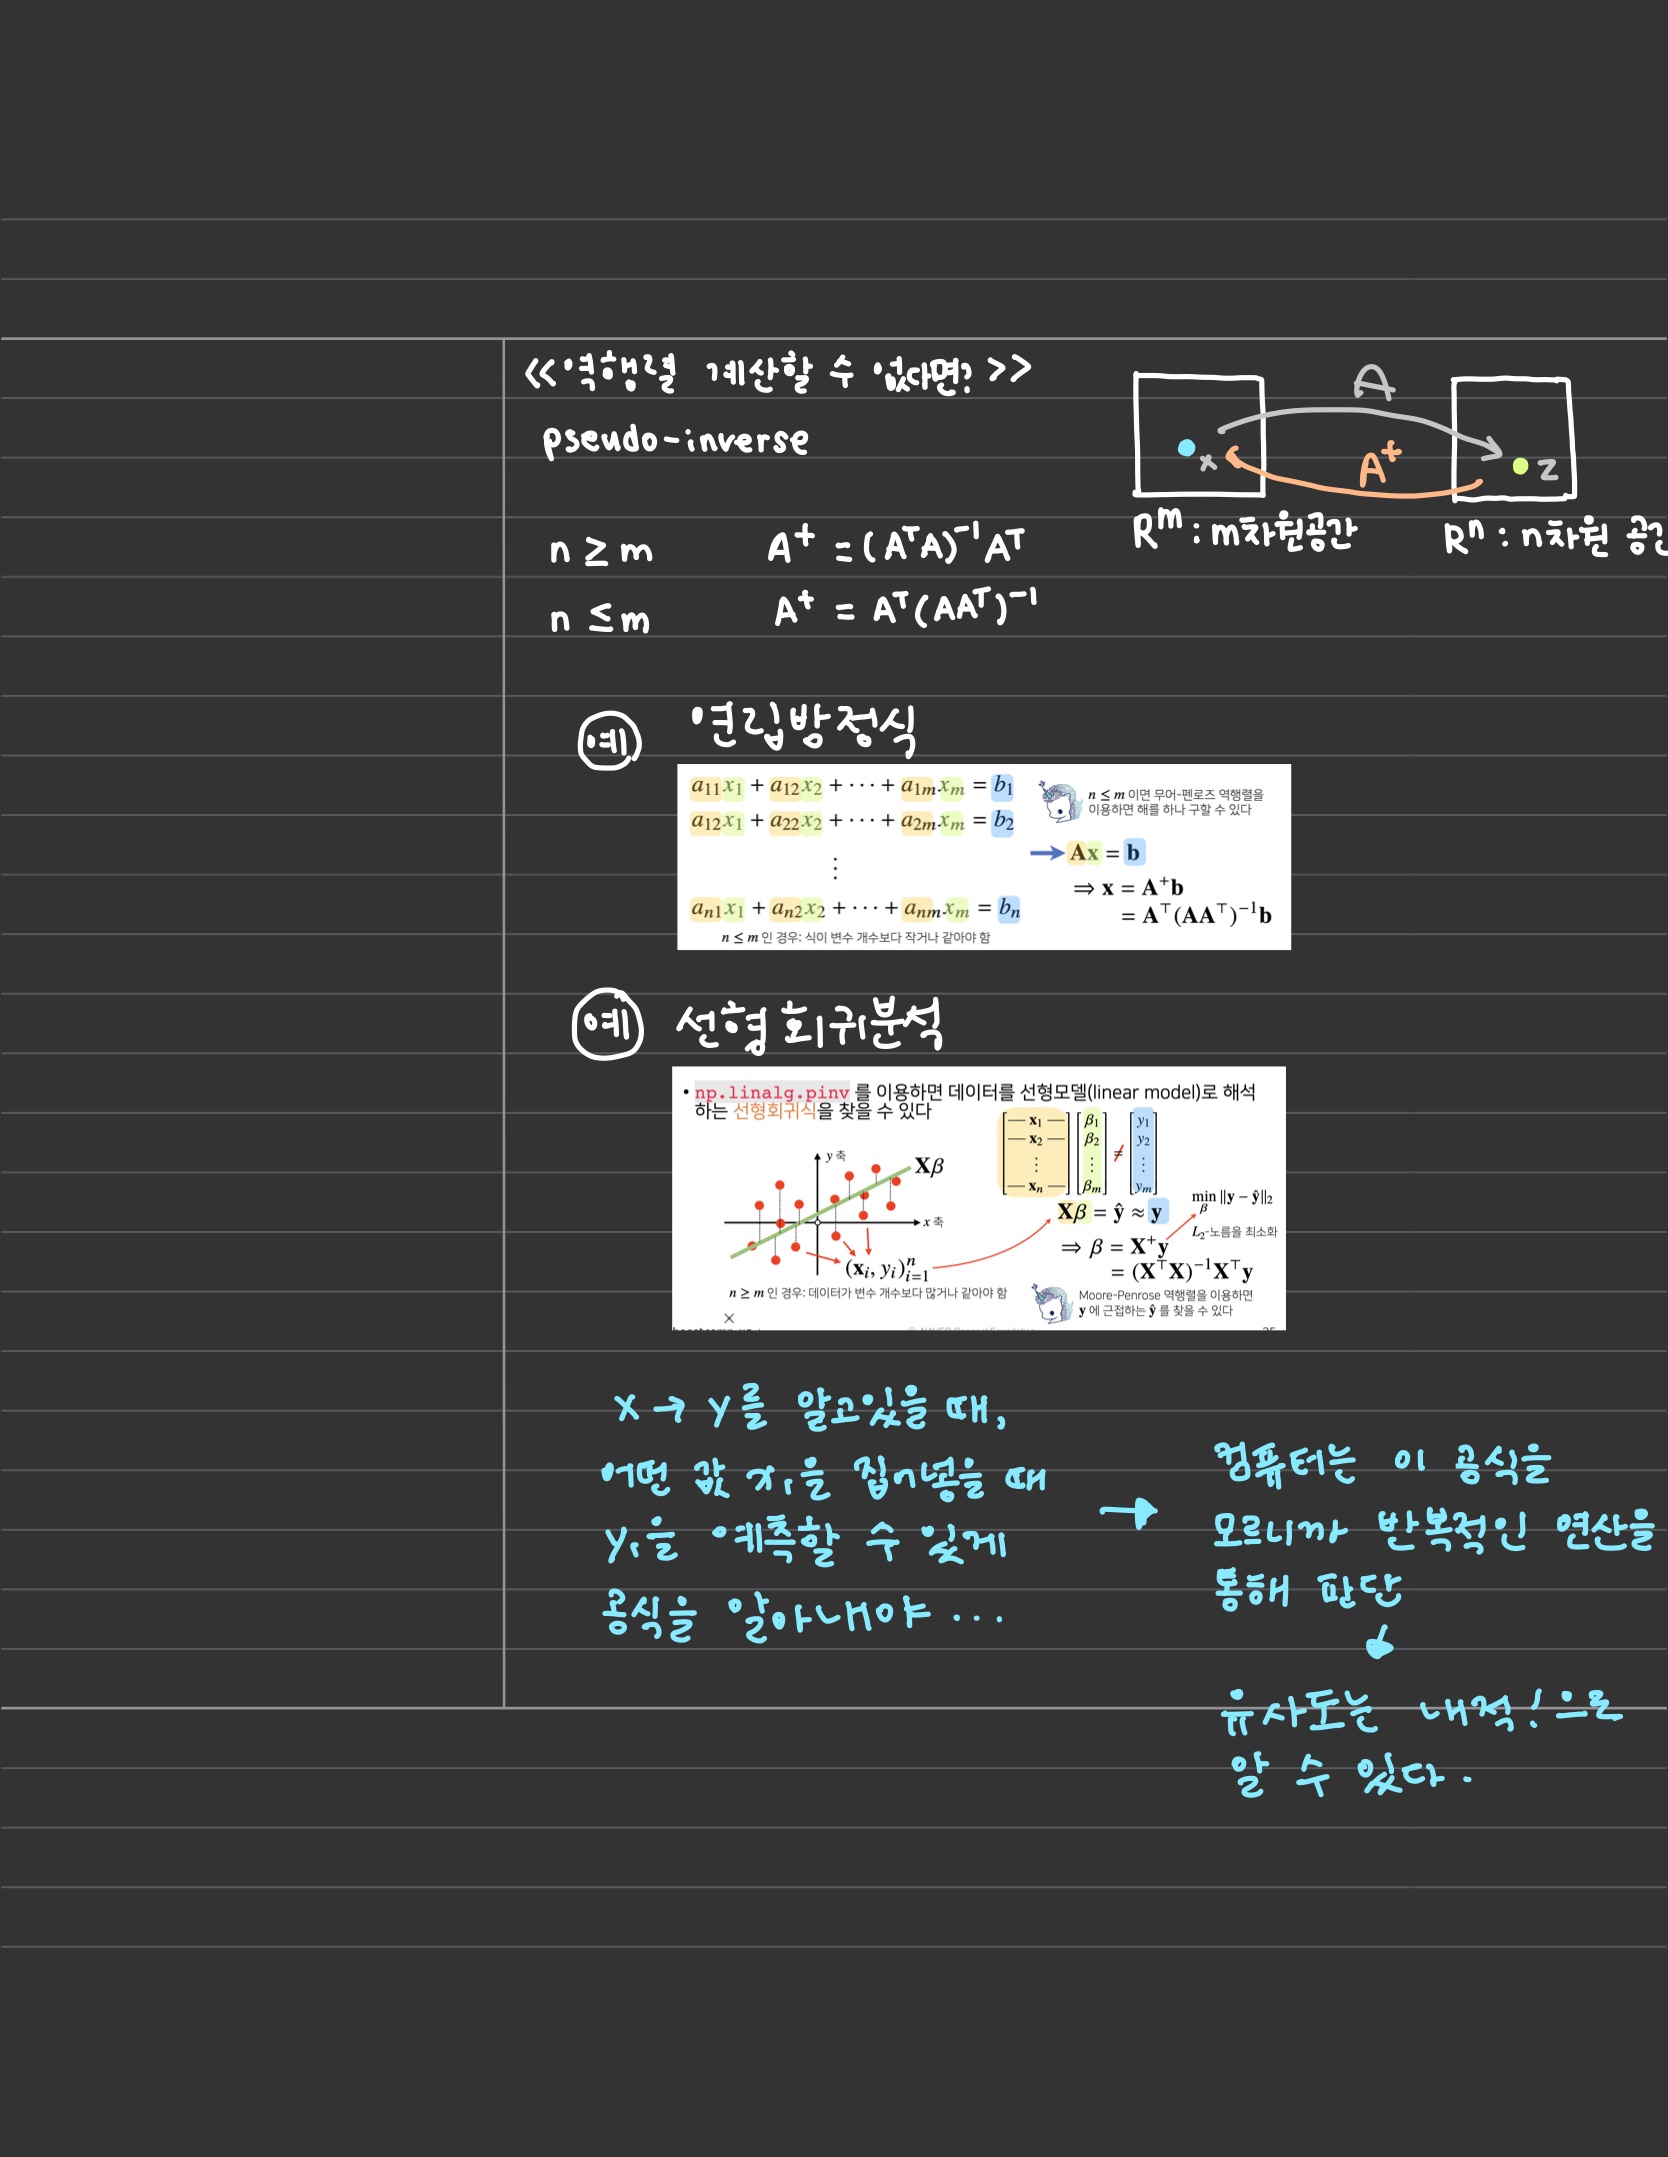 <<역행렬 계산할 수 없다면?>>
pseudo-inverse
A
x
A⁺
z
Rᵐ : m차원공간
Rⁿ : n차원 공간
n ≥ m A⁺ = (AᵀA)⁻¹Aᵀ
n ≤ m A⁺ = Aᵀ(AAᵀ)⁻¹
예 연립방정식
a₁₁x₁ + a₁₂x₂ + ⋯ + a₁ₘxₘ = b₁
a₁₂x₁ + a₂₂x₂ + ⋯ + a₂ₘxₘ = b₂
⋮
aₙ₁x₁ + aₙ₂x₂ + ⋯ + aₙₘxₘ = bₙ
n ≤ m 인 경우: 식이 변수 개수보다 작거나 같아야 함
n ≤ m 이면 무어-펜로즈 역행렬을
이용하면 해를 하나 구할 수 있다
→ Ax = b
⇒ x = A⁺b
= A⊤(AA⊤)⁻¹b
예 선형회귀분석
• np.linalg.pinv 를 이용하면 데이터를 선형모델(linear model)로 해석
하는 선형회귀식을 찾을 수 있다
y 축
Xβ
x 축
(xᵢ, yᵢ)ⁿᵢ₌₁
n ≥ m 인 경우: 데이터가 변수 개수보다 많거나 같아야 함
— x₁ — β₁ y₁
— x₂ — β₂ y₂
⋮ ⋮ ≠ ⋮
— xₙ — βₘ yₘ
Xβ = ŷ ≈ y
min ‖y − ŷ‖₂
β
L₂-노름을 최소화
⇒ β = X⁺y
= (X⊤X)⁻¹X⊤y
Moore-Penrose 역행렬을 이용하면
y 에 근접하는 ŷ 를 찾을 수 있다
×
x → y를 알고있을 때,
어떤 값 x₁을 집어넣을 때
y₁을 예측할 수 있게
공식을 알아내야 ...
→ 컴퓨터는 이 공식을
모르니까 반복적인 연산을
통해 판단
↓
유사도는 내적!으로
알 수 있다.